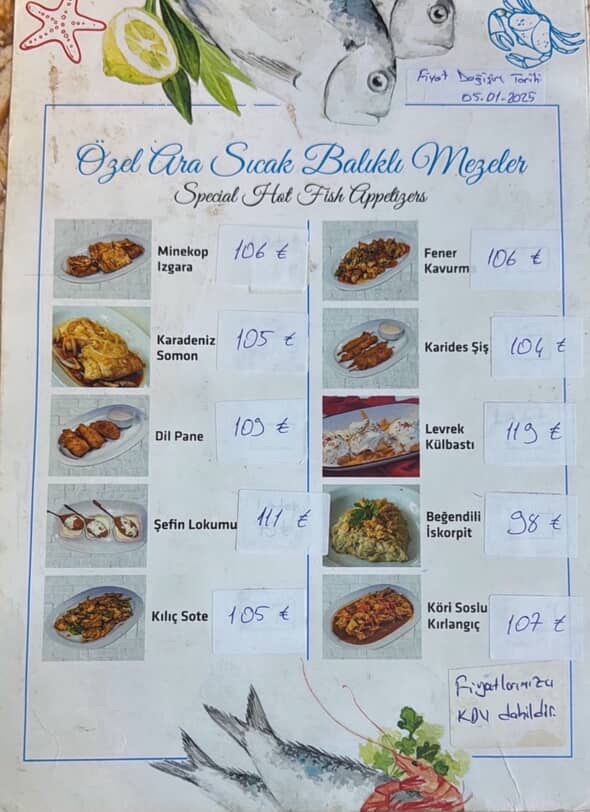 Fiyat Değişim Tarihi
05-01-2025
Özel Ara Sıcak Balıklı Mezeler
Special Hot Fish Appetizers
Minekop
Izgara
106 ₺
Karadeniz
Somon
105 ₺
Dil Pane
109 ₺
Şefin Lokumu
111 ₺
Kılıç Sote
105 ₺
Fener
Kavurm
106 ₺
Karides Şiş
104 ₺
Levrek
Külbastı
119 ₺
Beğendili
İskorpit
98 ₺
Köri Soslu
Kırlangıç
107 ₺
Fiyatlarımıza
KDV dahildir.